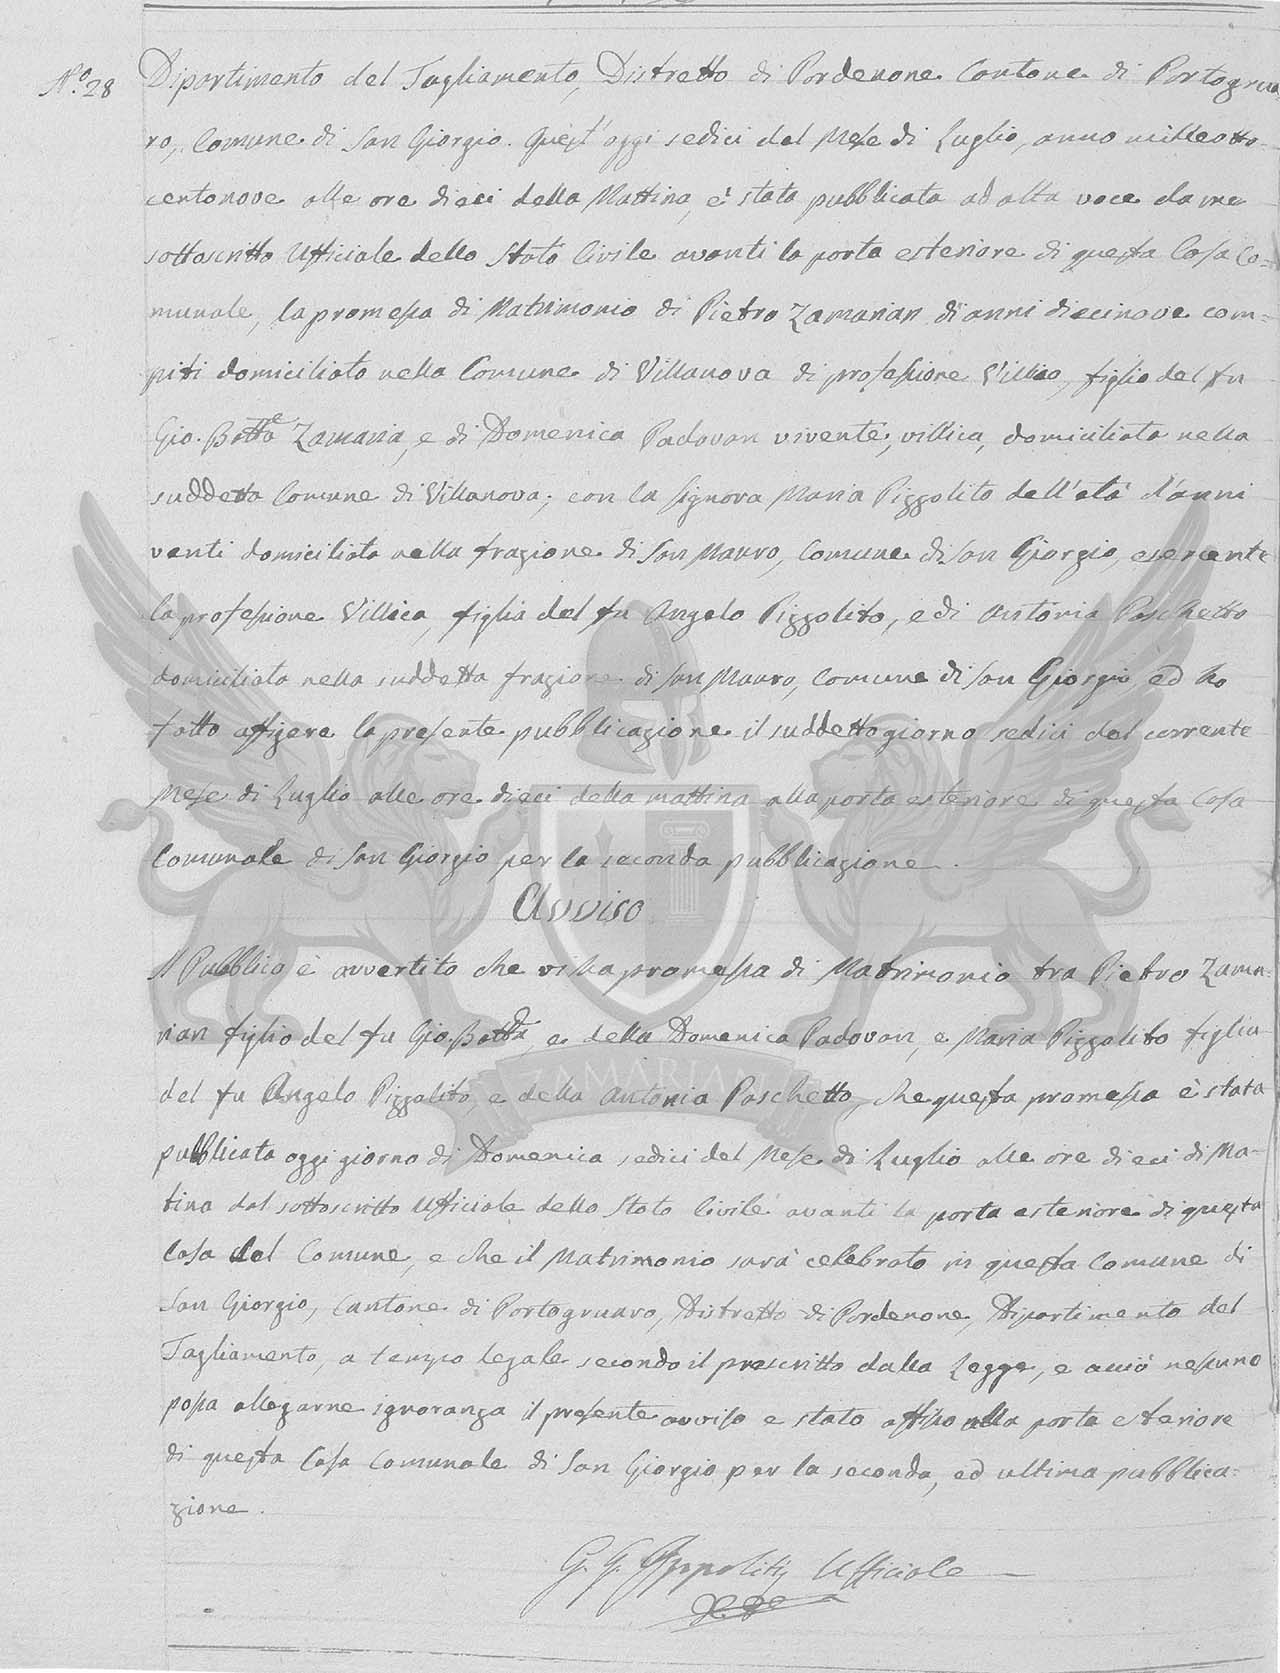 N.º 28
Dipartimento del Tagliamento, Distretto di Pordenone Cantone di Portogrua
ro, Comune di San Giorgio. Quest'oggi sedici del Mese di Luglio, anno milleotto=
centonove alle ore dieci della Mattina, è stata pubblicata ad alta voce da me
sottoscritto Ufficiale dello Stato Civile avanti la porta esteriore di questa Casa Co=
munale, la promessa di Matrimonio di Pietro Zamarian di anni diecinove com=
piti domiciliato nella Comune di Villanova di professione Villico, figlio del fu
Gio. Batta Zamaria, e di Domenica Padovan vivente, villica, domiciliata nella
suddetta Comune di Villanova; con la Signora Maria Pizzolito dell'età d'anni
venti domiciliata nella frazione di San Mauro, Comune di San Giorgio, esercente
la professione Villica, figlia del fu Angelo Pizzolito, e di Antonia Paschetto
domiciliata nella suddetta frazione di San Mauro, Comune di San Giorgio, ed ho
fatto affigere la presente pubblicazione il suddetto giorno sedici del corrente
Mese di Luglio alle ore dieci della mattina alla porta esteriore di questa Casa
Comunale di San Giorgio per la seconda pubblicazione.
Avviso
Il Pubblico è avvertito che vi ha promessa di Matrimonio tra Pietro Zama=
rian figlio del fu Gio. Batta, e della Domenica Padovan, e Maria Pizzolito figlia
del fu Angelo Pizzolito, e della Antonia Paschetto, che questa promessa è stata
ZAMARIAN
pubblicata oggi giorno di Domenica sedici del Mese di Luglio alle ore dieci di Ma=
tina dal sottoscritto Ufficiale dello Stato Civile avanti la porta esteriore di questa
Casa del Comune, e che il Matrimonio sarà celebrato in questa Comune di
San Giorgio, Cantone di Portogruaro, Distretto di Pordenone, Dipartimento del
Tagliamento, a tempo legale secondo il prescritto dalla Legge, e acciò nessuno
possa allegarne ignoranza il presente avviso e stato affisso alla porta esteriore
di questa Casa Comunale di San Giorgio per la seconda, ed ultima pubblica=
zione.
G. G. Ippolitij Ufficiale